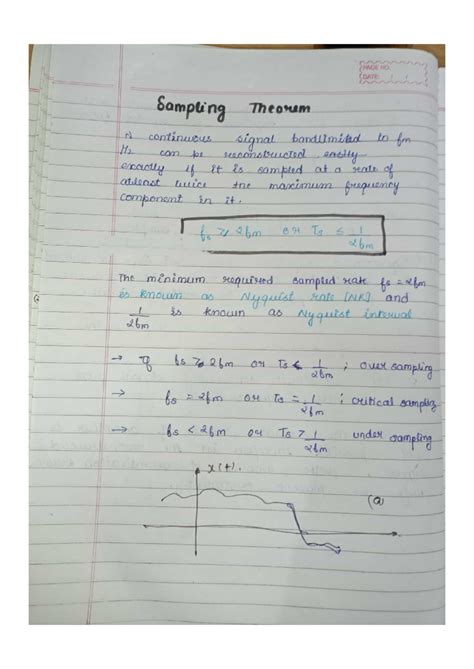 PAGE NO.
DATE: / /
Sampling Theorem
A continuous signal bandlimited to fm
Hz can be reconstructed easily
exactly if it is sampled at a rate of
atleast twice the maximum frequency
component in it.
fs ≥ 2fm or Ts ≤ 1/2fm
The minimum required sampled rate fs = 2fm
is known as Nyquist rate [NR] and
1/2fm is known as Nyquist interval
→ If fs > 2fm or Ts < 1/2fm ; over sampling
→ fs = 2fm or Ts = 1/2fm ; critical sampling
→ fs < 2fm or Ts > 1/2fm under sampling
x(t).
(a